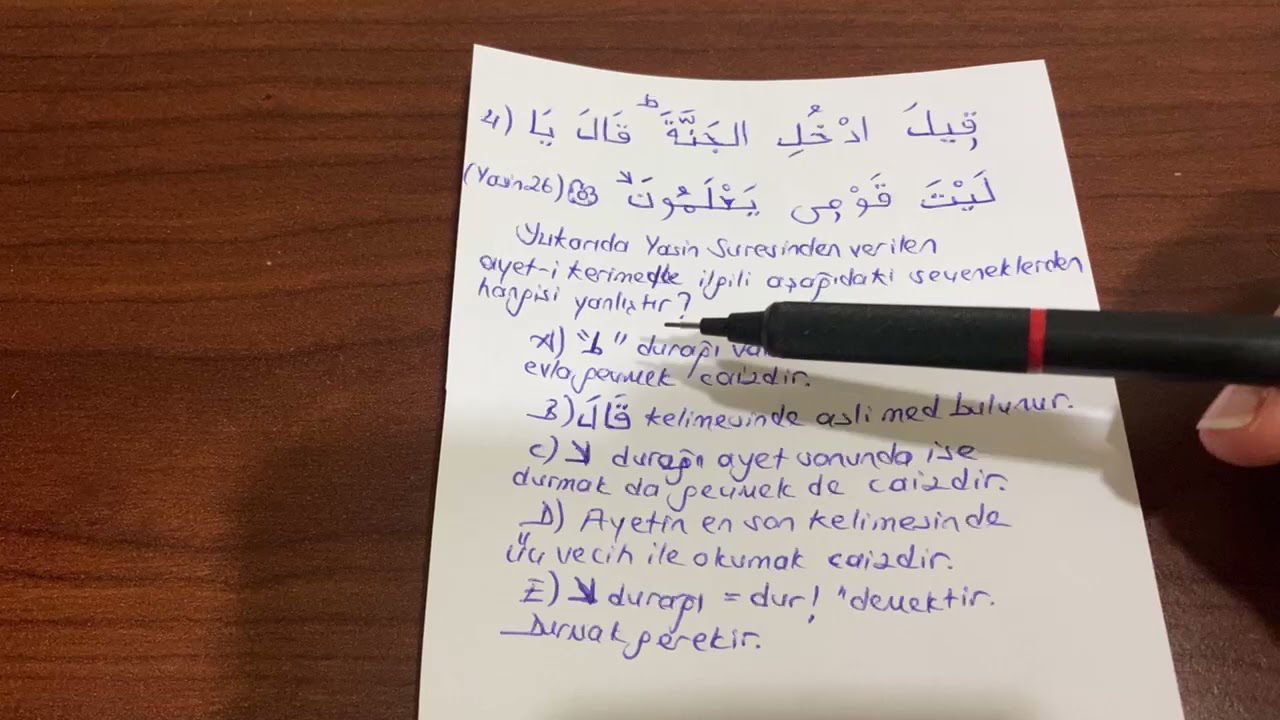 4) قِيلَ ادْخُلِ الجَنَّةَ ط قَالَ يَا
لَيْتَ قَوْمِى يَعْلَمُونَ لا (Yasin 26)
Yukarıda Yasin Suresinden verilen
ayet-i kerimeyle ilgili aşağıdaki seçeneklerden
hangisi yanlıştır?
A) "ط" durağı
evla, geçmek caizdir.
B) قَالَ kelimesinde asli med bulunur.
C) لا durağı ayet sonunda ise
durmak da geçmek de caizdir.
D) Ayetin en son kelimesinde
üç vecih ile okumak caizdir.
E) لا durağı = dur! "demektir.
Durmak gerekir.